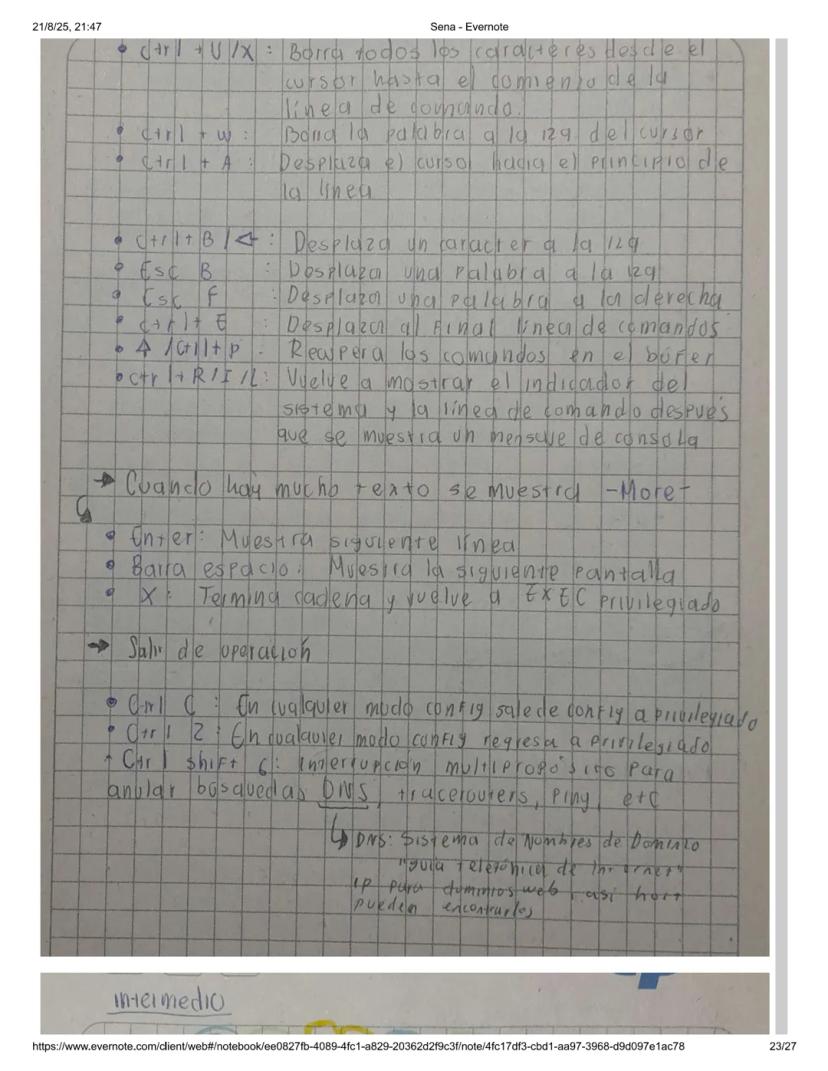 21/8/25, 21:47
Sena - Evernote
• Ctrl + U /X : Borra todos los caracteres desde el
cursor hasta el comienzo de la
línea de comando.
• Ctrl + w : Borra la palabra a la izq del cursor
• Ctrl + A : Desplaza el cursor hacia el principio de
la línea
• Ctrl + B / ← : Desplaza un caracter a la izq
• Esc B : Desplaza una palabra a la izq
• Esc F : Desplaza una palabra a la derecha
• Ctrl + E : Desplaza al Final línea de comandos
• ↑ / Ctrl + p : Recupera los comandos en el búfer
• ctrl + R / I / L : Vuelve a mostrar el indicador del
sistema y la línea de comando después
que se muestra un mensaje de consola
→ Cuando hay mucho texto se muestra -More-
• Enter : Muestra siguiente línea
• Barra espacio : Muestra la siguiente pantalla
• X : Termina cadena y vuelve a EXEC privilegiado
→ Salir de operación
• Ctrl C : En cualquier modo config sale de config a privilegiado
• Ctrl Z : En cualquier modo config regresa a privilegiado
• Ctrl shift 6 : interrupción multipropósito para
anular búsquedas DNS, tracerouters, Ping, etc
↳ DNS: Sistema de Nombres de Dominio
"guía telefónica de internet"
ip para dominios web, así host
pueden encontrarlos
intermedio
https://www.evernote.com/client/web#/notebook/ee0827fb-4089-4fc1-a829-20362d2f9c3f/note/4fc17df3-cbd1-aa97-3968-d9d097e1ac78
23/27